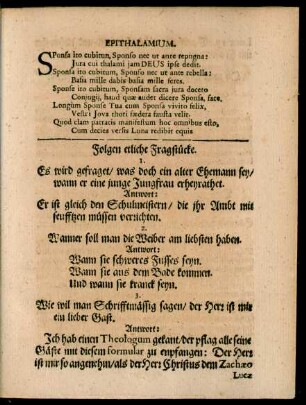 EPITHALAMIUM.
SPonsa ito cubitum, Sponso nec ut ante repugna:
Jura cui thalami jam DEUS ipse dedit.
Sponsa ito cubitum, Sponso nec ut ante rebella:
Basia mille dabis basia mille feres.
Sponse ito cubitum, Sponsam sacra jura docero
Conjugij, haud quæ audet dicere Sponsa, face.
Longùm Sponse Tua cum Sponsa vivito felix,
Vestra Jova thori fædera fausta velit.
Quod clam patractis manifestum hoc omnibus esto,
Cum decies versa Luna redibit equis
Folgen etliche Fragstücke.
1.
Es wird gefraget / was doch ein alter Ehemann sey /
wann er eine junge Jungfrau erheyrathet.
Antwort:
Er ist gleich den Schulmeistern / die ihr Ambt mit
seufftzen müssen verrichten.
2.
Wanner soll man die Weiber am liebsten haben.
Antwort:
Wann sie schweres Fusses seyn.
Wann sie aus dem Bade kommen.
Und wann sie kranck seyn.
3.
Wie wil man Schrifftmässig sagen / der Herr ist mir
ein lieber Gast.
Antwort:
Ich hab einen Theologum gekant / der pflag alle seine
Gäste mit diesem formular zu empfangen: Der Herr
ist mir so angenehm / als der Herr Christus dem Zachæo
Lucæ